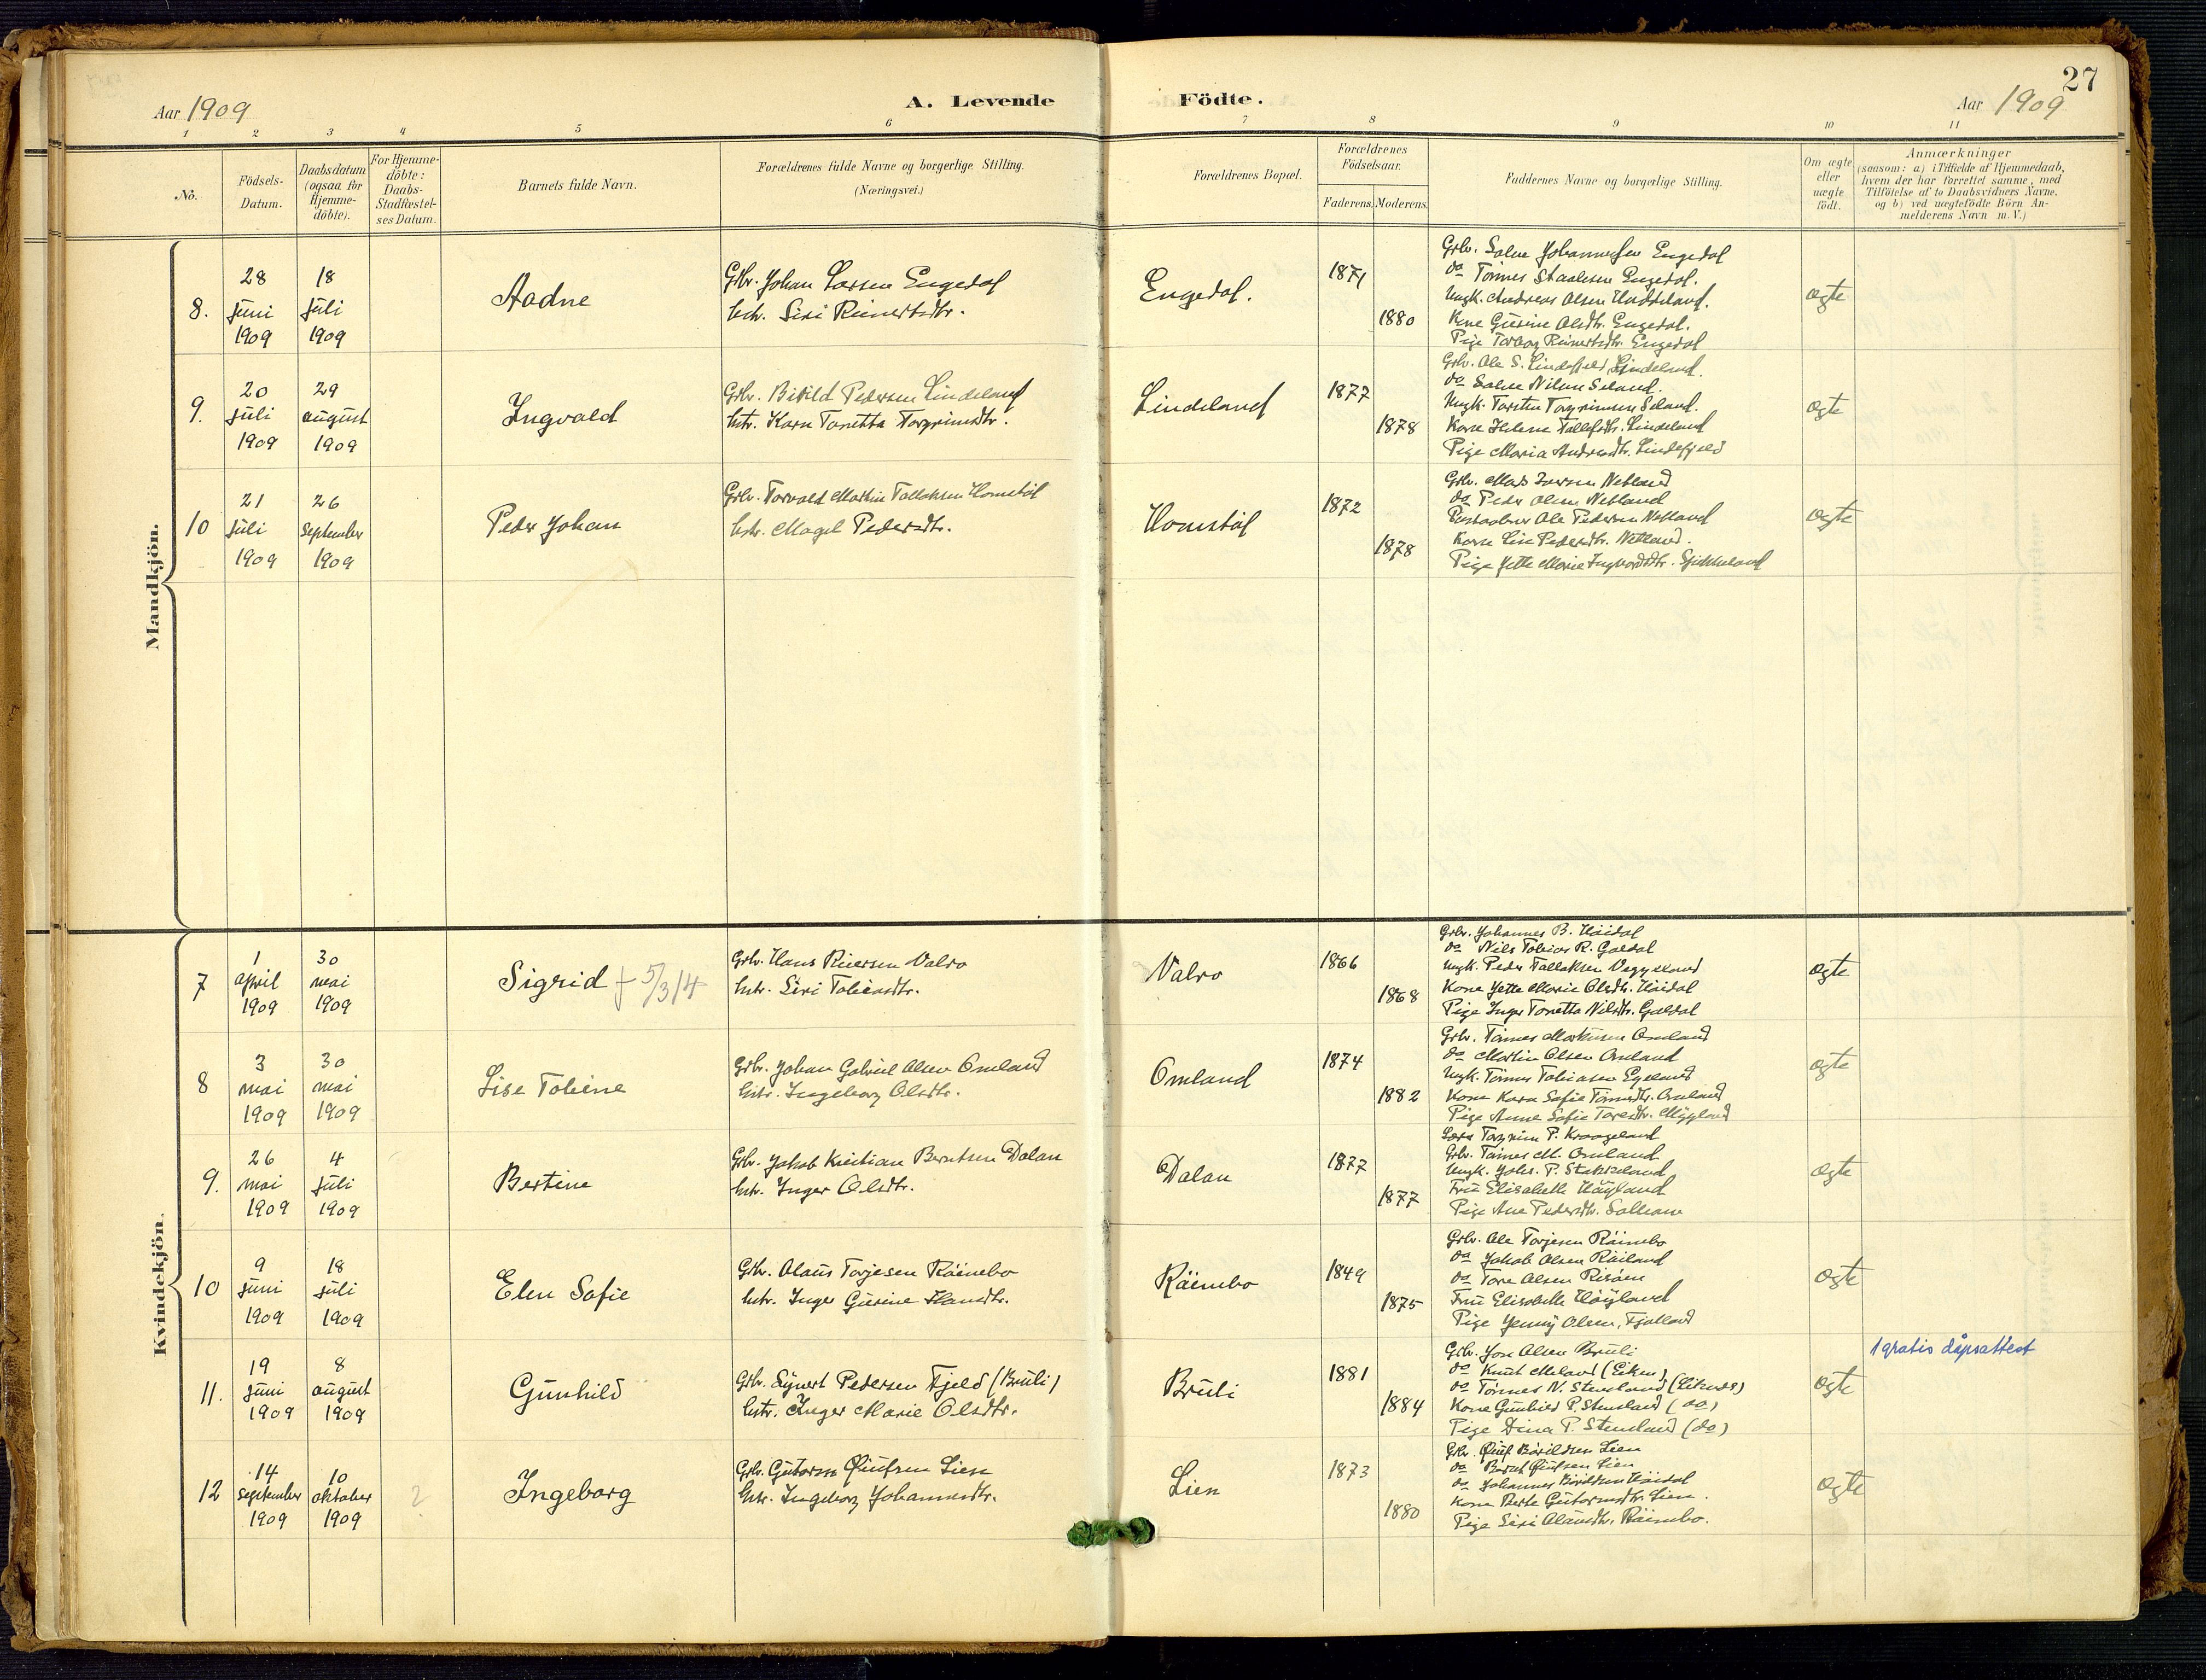 27
Aar 1909
A. Levende Födte.
Aar 1909
1 2 3 4 5 6 7 8 9 10 11
No.
Födsels-Datum.
Daabsdatum (ogsaa for Hjemme-döbte).
For Hjemme-döbte: Daabs-Stadfæstel-ses Datum.
Barnets fulde Navn.
Forældrenes fulde Navne og borgerlige Stilling.
(Næringsvei.)
Forældrenes Bopæl.
Forældrenes Födselsaar.
Faderens. Moderens.
Faddernes Navne og borgerlige Stilling.
Om ægte eller uægte födt.
Anmærkninger
(saasom: a) i Tilfælde af Hjemmedaab,
hvem der har forrettet samme, med
Tilföielse af to Daabsvidners Navne.
og b) ved uægtefödte Börn An-
melderens Navn m. V.)
Mandkjön.
8. 28 juni 1909
18 juli 1909
Aadne
Grbr. Johan Larsen Engedal
hstr. Siri Reinertsdtr.
Engedal.
1871
1880
Grbr. Salve Johannessen Engedal
do Tönnes Staalesen Engedal.
Ungk. Andreas Olsen Haddeland.
Kone Gurine Olsdtr. Engedal.
Pige Torborg Reinertsdtr. Engedal
ægte
9. 20 juli 1909
29 august 1909
Ingvald
Grbr. Pedersen Lindeland
hstr. Karn Tonetta Torgrimsdtr.
Lindeland
1877
1878
Grbr. Ole S. Lindefjeld, Lindeland.
do Salve Nilsen Seland.
Ungk. Torsten Torgrimsen Seland.
Kone Helene Lindeland
Pige Maria Lindefjeld
ægte
10 21 juli 1909
26 september 1909
Peder Johan
Grbr. Torvald Martin Tallaksen Homstöl
hstr. Magel Pedersdtr.
Homstöl
1872
1878
Grbr. Mads Netland
do Peder Olsen Netland
Ole Pedersen Netland
Kone Lise Pedersdtr. Netland.
Pige Jette Marie
ægte
Kvindekjön.
7 1 april 1909
30 mai 1909
Sigrid † 5/3 14
Grbr. Hans Reiersen Valvo
hstr. Siri Tobiasdtr.
Valvo
1866
1868
Grbr. Johannes B. Höidal
do Nils Tobias R. Galdal
Ungk. Peder Tallaksen
Kone Jette Marie Olsdtr. Höidal
Pige Inger Tonetta Nilsdtr. Galdal
ægte
8 3 mai 1909
30 mai 1909
Lise Tobine
Grbr. Johan Gabriel Olsen Omland
hstr. Ingeborg Olsdtr.
Omland
1874
1882
Grbr. Tönnes Mathisen Omland
do Martin Olsen Omland
Ungk. Tönnes Tobiasen Egeland
Kone Karn Sofie Tönnesdtr. Omland
Pige Anne Sofie Toresdtr. Mygland
ægte
9. 26 mai 1909
4 juli 1909
Bertine
Grbr. Jakob Kristian Berntsen Dalan
hstr. Inger Olsdtr.
Dalan
1877
1877
Torgrim P. Kraageland
Grbr. Tönnes M. Omland
Ungk. Johs. P. Stakkeland
Fru Elisabeth Höyland
Pige Ane Pedersdtr. Solhom
ægte
10 9 juni 1909
18 juli 1909
Elen Sofie
Grbr. Olaus Torjesen Röinebo
hstr. Inger Gurine Hansdtr.
Röinebo
1849
1875
Grbr. Ole Torjesen Röinebo
do Jakob Olsen Röiland
do Tore Olsen Risöen
Fru Elisabeth Höyland
Pige Jenny Olsen, Fjotland
ægte
11. 19 juni 1909
8 august 1909
Gunhild
Grbr. Sigvert Pedersen Fjeld (Bruli)
hstr. Inger Marie Olsdtr.
Bruli
1881
1884
Grbr. Jon Olsen Bruli
do Knut Meland (Eiken)
do Tönnes N. Stensland
Kone Gunhild P. Stensland (do)
Pige Dina P. Stensland (do)
ægte
1 gratis dåpsattest
12 14 september 1909
10 oktober 1909
2
Ingeborg
Grbr. Gutorm Lien
hstr. Ingeborg Johannesdtr.
Lien
1873
1880
Grbr. Lien
do Lien
do Johannes Höidal
Kone Berte Gutormsdtr. Lien.
Pige Siri Olausdtr. Röinebo.
ægte